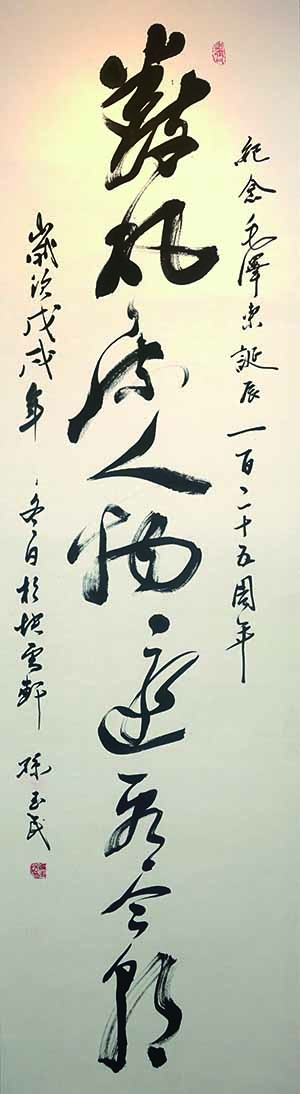 紀念毛澤東誕辰一百二十五周年
數風流人物還看今朝
歲次戊戌年 冬日於雲軒 孫玉民